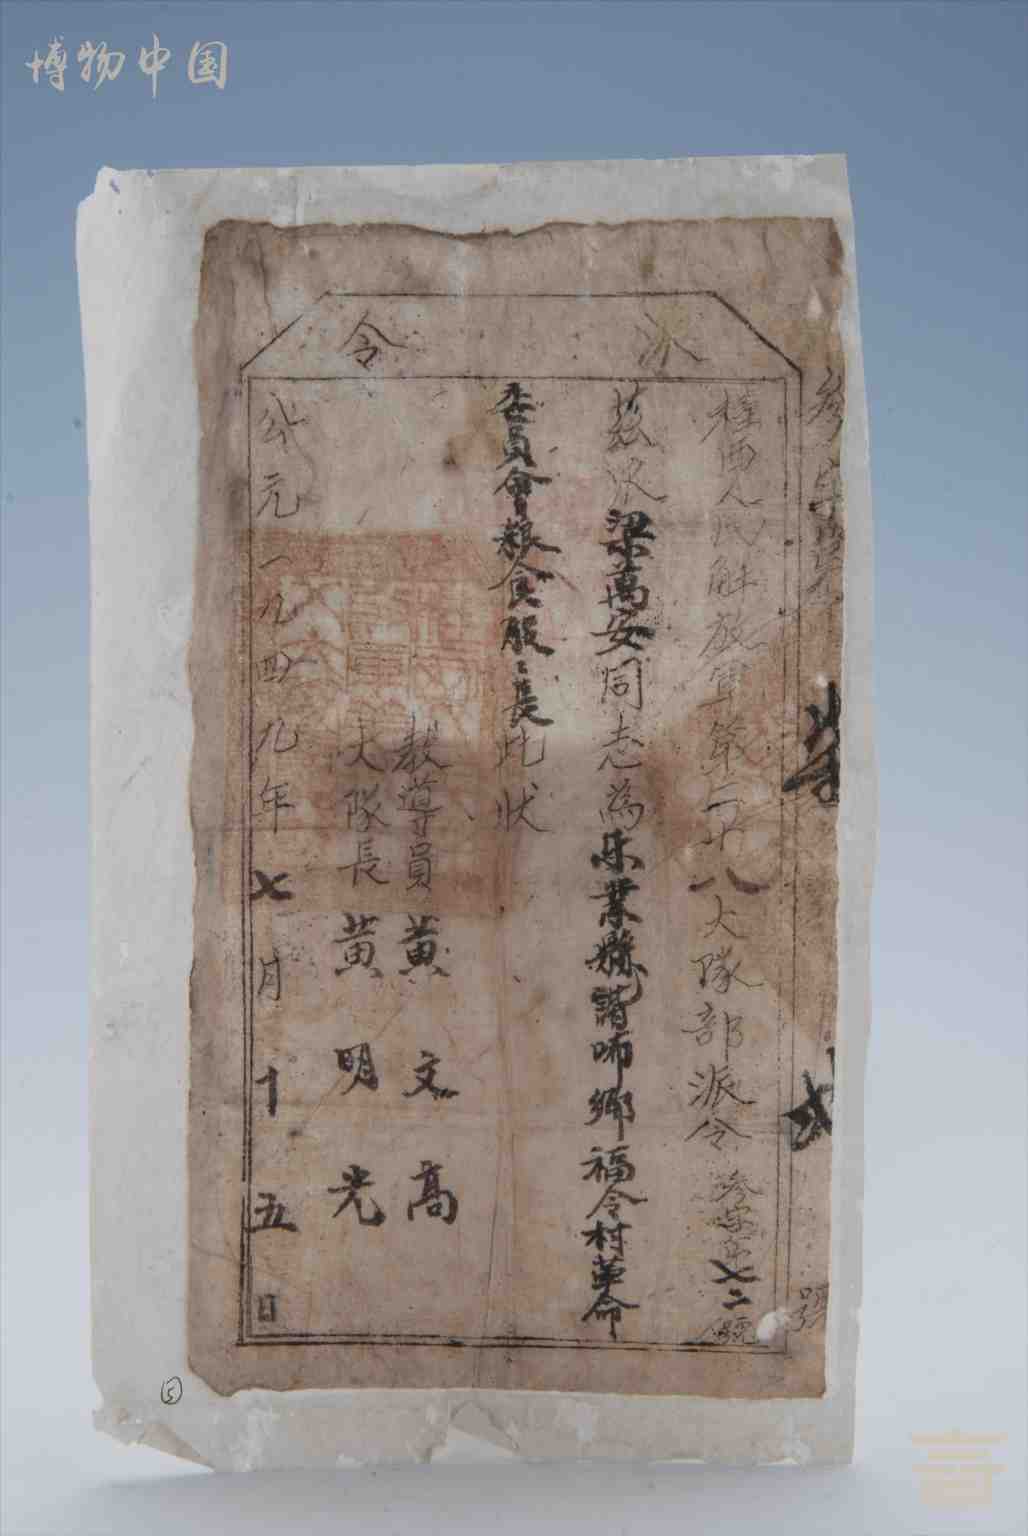 博物中国
派令
參字第柒弍號
桂西人民解放軍第二十八大隊部派令 參字第七二號
茲派梁萬安同志為乐業縣請哊鄉福令村革命
委員會粮食股々長此状
教導員黃文高
大隊長黃明光
公元一九四九年七月十五日
⑤